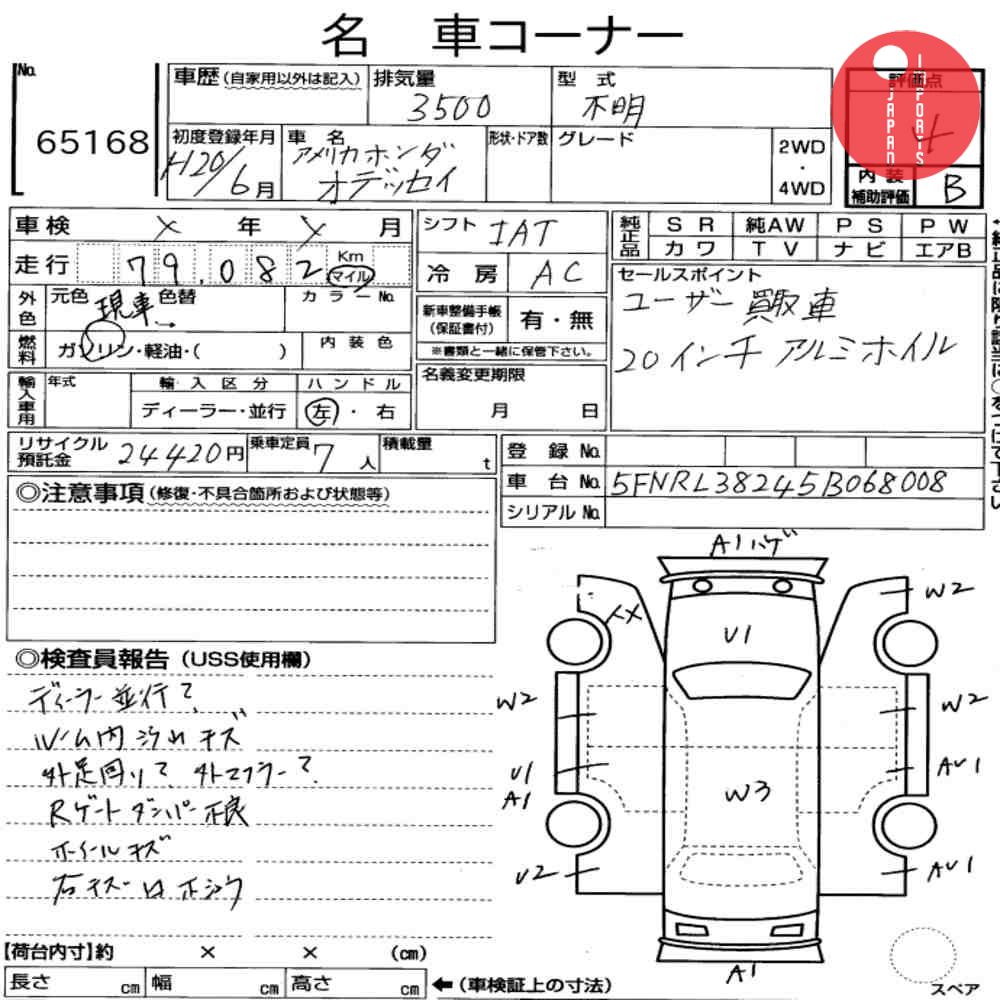 名 車コーナー
No.
65168
車歴 (自家用以外は記入)
排気量
3500
型 式
不明
評価点
4
JAPAN IMPORTS
初度登録年月
H20/6月
車 名
アメリカホンダ
オデッセイ
形状・ドア数
グレード
2WD
・
4WD
内 装
補助評価
B
車検 X 年 X 月
走行 79,082 Km マイル
シフト IAT
冷房 AC
純正品
SR 純AW PS PW
カワ TV ナビ エアB
セールスポイント
ユーザー買取車
20インチ アルミホイル
外色
元色 現車 色替
カラーNo.
燃料
ガソリン・軽油・( )
内装色
新車整備手帳
(保証書付)
有・無
※書類と一緒に保管下さい。
名義変更期限
月 日
輸入車用
年式
輸入区分
ディーラー・並行
ハンドル
左・右
リサイクル
預託金
24420円
乗車定員
7人
積載量
t
登録 No.
車台 No. 5FNRL38245B068008
シリアル No.
◎注意事項 (修復・不具合箇所および状態等)
◎検査員報告 (USS使用欄)
ディーラー並行?
ルーム内 汚れ キズ
外足回り? 外マフラー?
Rゲートダンパー不良
ホイールキズ
A1ハゲ
W2
U1
W2
W2
U1
A1
AU1
W3
U2
AU1
A1
スペア
【荷台内寸】約 × × (cm)
長さ cm 幅 cm 高さ cm ←(車検証上の寸法)